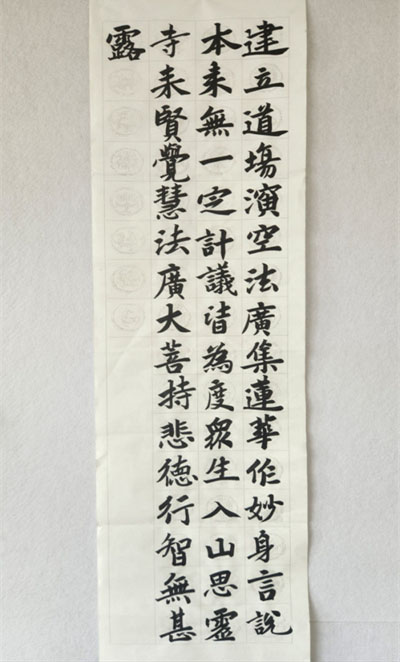 建立道場演空法廣集蓮華作妙身言說
本來無一定計議皆為度眾生入山思靈
寺未賢覺慧法廣大菩持悲德行智無甚
露